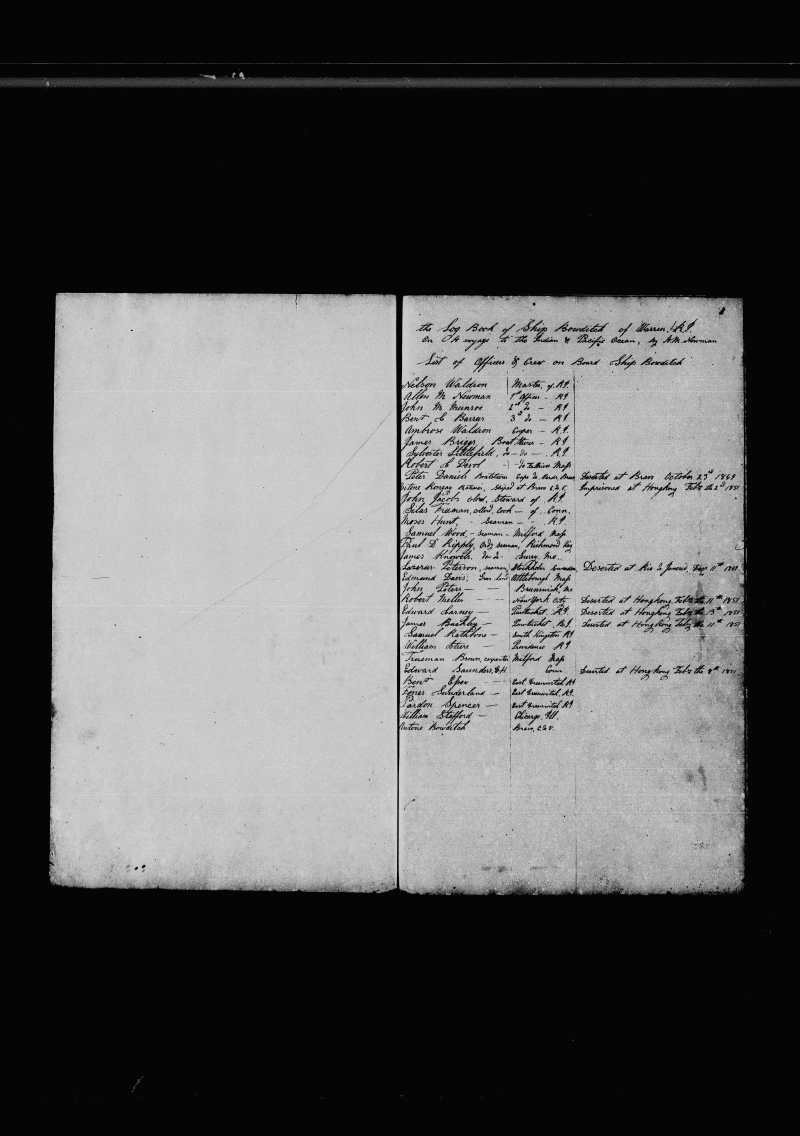 the Log Book of Ship Bowditch of Warren, R.I.
On A voyage to the Indian & Pacific Ocean, by A.M. Newman
List of Officers & Crew on Board Ship Bowditch
Nelson Waldron Master, of R.I.
Allen M Newman 1st Officer - RI
John M Munroe 2d do - R.I.
Benj C Barrus 3d do - R.I.
Ambrose Waldron Cooper - R.I.
James Briggs, Boat Steerer - R.I.
Sylvester Littlefield, do - do - R.I.
Robert C Devol - do Mass
Peter Daniels Boatsteerer Cape de Deserted at Bravo October 23d 1849
Shiped at Bravo C.d.V. Imprisoned at Hongkong Feb'y the 2d 1851
John Jacobs Steward of R.I.
Silas Freeman, Cook - of Conn.
Moses Hunt, - Seaman - - R.I.
Samuel Wood, - seaman - Milford Mass
Paul D Ripply, Ord'y seaman, Richmond
James Knowels, do do Surry, Me.
Lazerus Peterson, seaman, Stockholm Sweden, Deserted at Rio de Janerio, 11th
Edmund Davis, Attleborough Mass
John Peters - - Brunswick, Me
Robert Mellis - - New York City Deserted at Hongkong, Feb'y the 11th 1851
Edward Carney - Pawtucket R.I. Deserted at Hongkong Feb'y the 13th 1851
James Buckley - Pawtucket R.I. Deserted at HongKong Feb'y the 11th 1851
Samuel Rathbone - South Kingston RI
William Steere - Providence R.I
Trueman Brown, carpenter Milford Mass
Edward Saunders, Conn Deserted at Hongkong Feb'y the 8th 1851
Benj Essex - East Greenwich RI
Sunderland - East Greenwich R.I.
Pardon Spencer - East Greenwich R.I
William Stafford - Chicago, Ill.
Antone Bowditch Bravo, C.d.V.